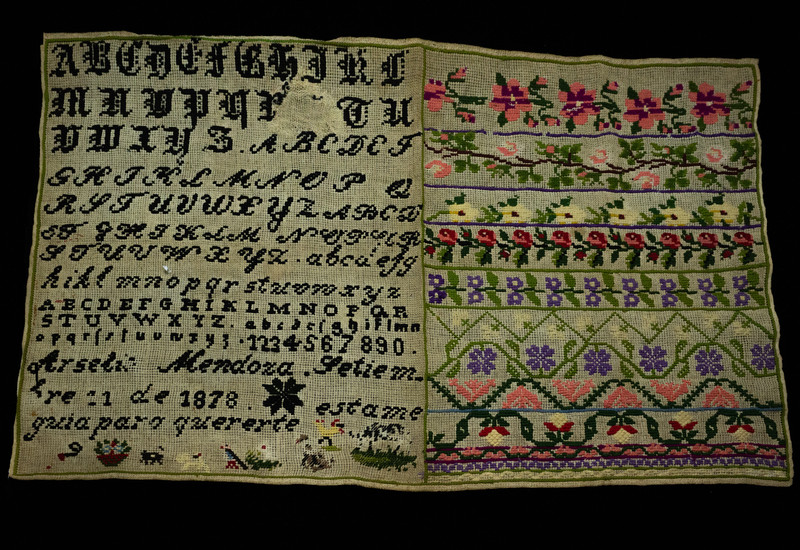 A B C D E F G H I K L
M N O P Q R T U
V W X Y Z . A B C D E F
G H I J K L M N O P Q
R S T U V W X Y Z A B C D
E F G H I J K L M N O P Q R
S T U V W X Y Z . a b c d e f g
h i k l m n o p q r s t u v w x y z
A B C D E F G H I K L M N O P Q R
S T U V W X Y Z . a b c d e f g h i j l m n
o p q r s t u v w x y z . 1 2 3 4 5 6 7 8 9 0 .
Mendoza . Setiem-
bre 21 de 1878 . estame
guia para quererte